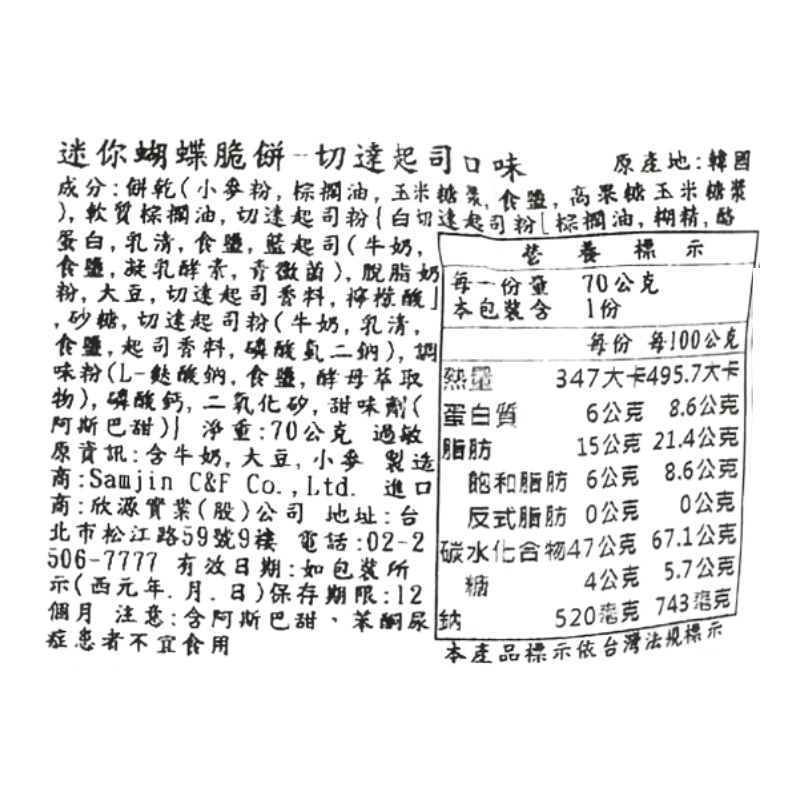 迷你蝴蝶脆餅-切達起司口味 原產地:韓國
成分:餅乾(小麥粉,棕櫚油,玉米糖漿,食鹽,高果糖玉米糖漿
),軟質棕櫚油,切達起司粉{白切達起司粉[棕櫚油,糊精,酪
蛋白,乳清,食鹽,藍起司(牛奶,
食鹽,凝乳酵素,青黴菌),脫脂奶
粉,大豆,切達起司香料,檸檬酸]
,砂糖,切達起司粉(牛奶,乳清,
食鹽,起司香料,磷酸氫二鈉),調
味粉(L-麩酸鈉,食鹽,酵母萃取
物),磷酸鈣,二氧化矽,甜味劑(
阿斯巴甜)} 淨重:70公克 過敏
原資訊:含牛奶,大豆,小麥 製造
商:Samjin C&F Co.,Ltd. 進口
商:欣源實業(股)公司 地址:台
北市松江路59號9樓 電話:02-2
506-7777 有效日期:如包裝所
示(西元年.月.日)保存期限:12
個月 注意:含阿斯巴甜、苯酮尿
症患者不宜食用
營養標示
每一份量 70公克
本包裝含 1份
每份 每100公克
熱量 347大卡 495.7大卡
蛋白質 6公克 8.6公克
脂肪 15公克 21.4公克
飽和脂肪 6公克 8.6公克
反式脂肪 0公克 0公克
碳水化合物 47公克 67.1公克
糖 4公克 5.7公克
鈉 520毫克 743毫克
本產品標示依台灣法規標示